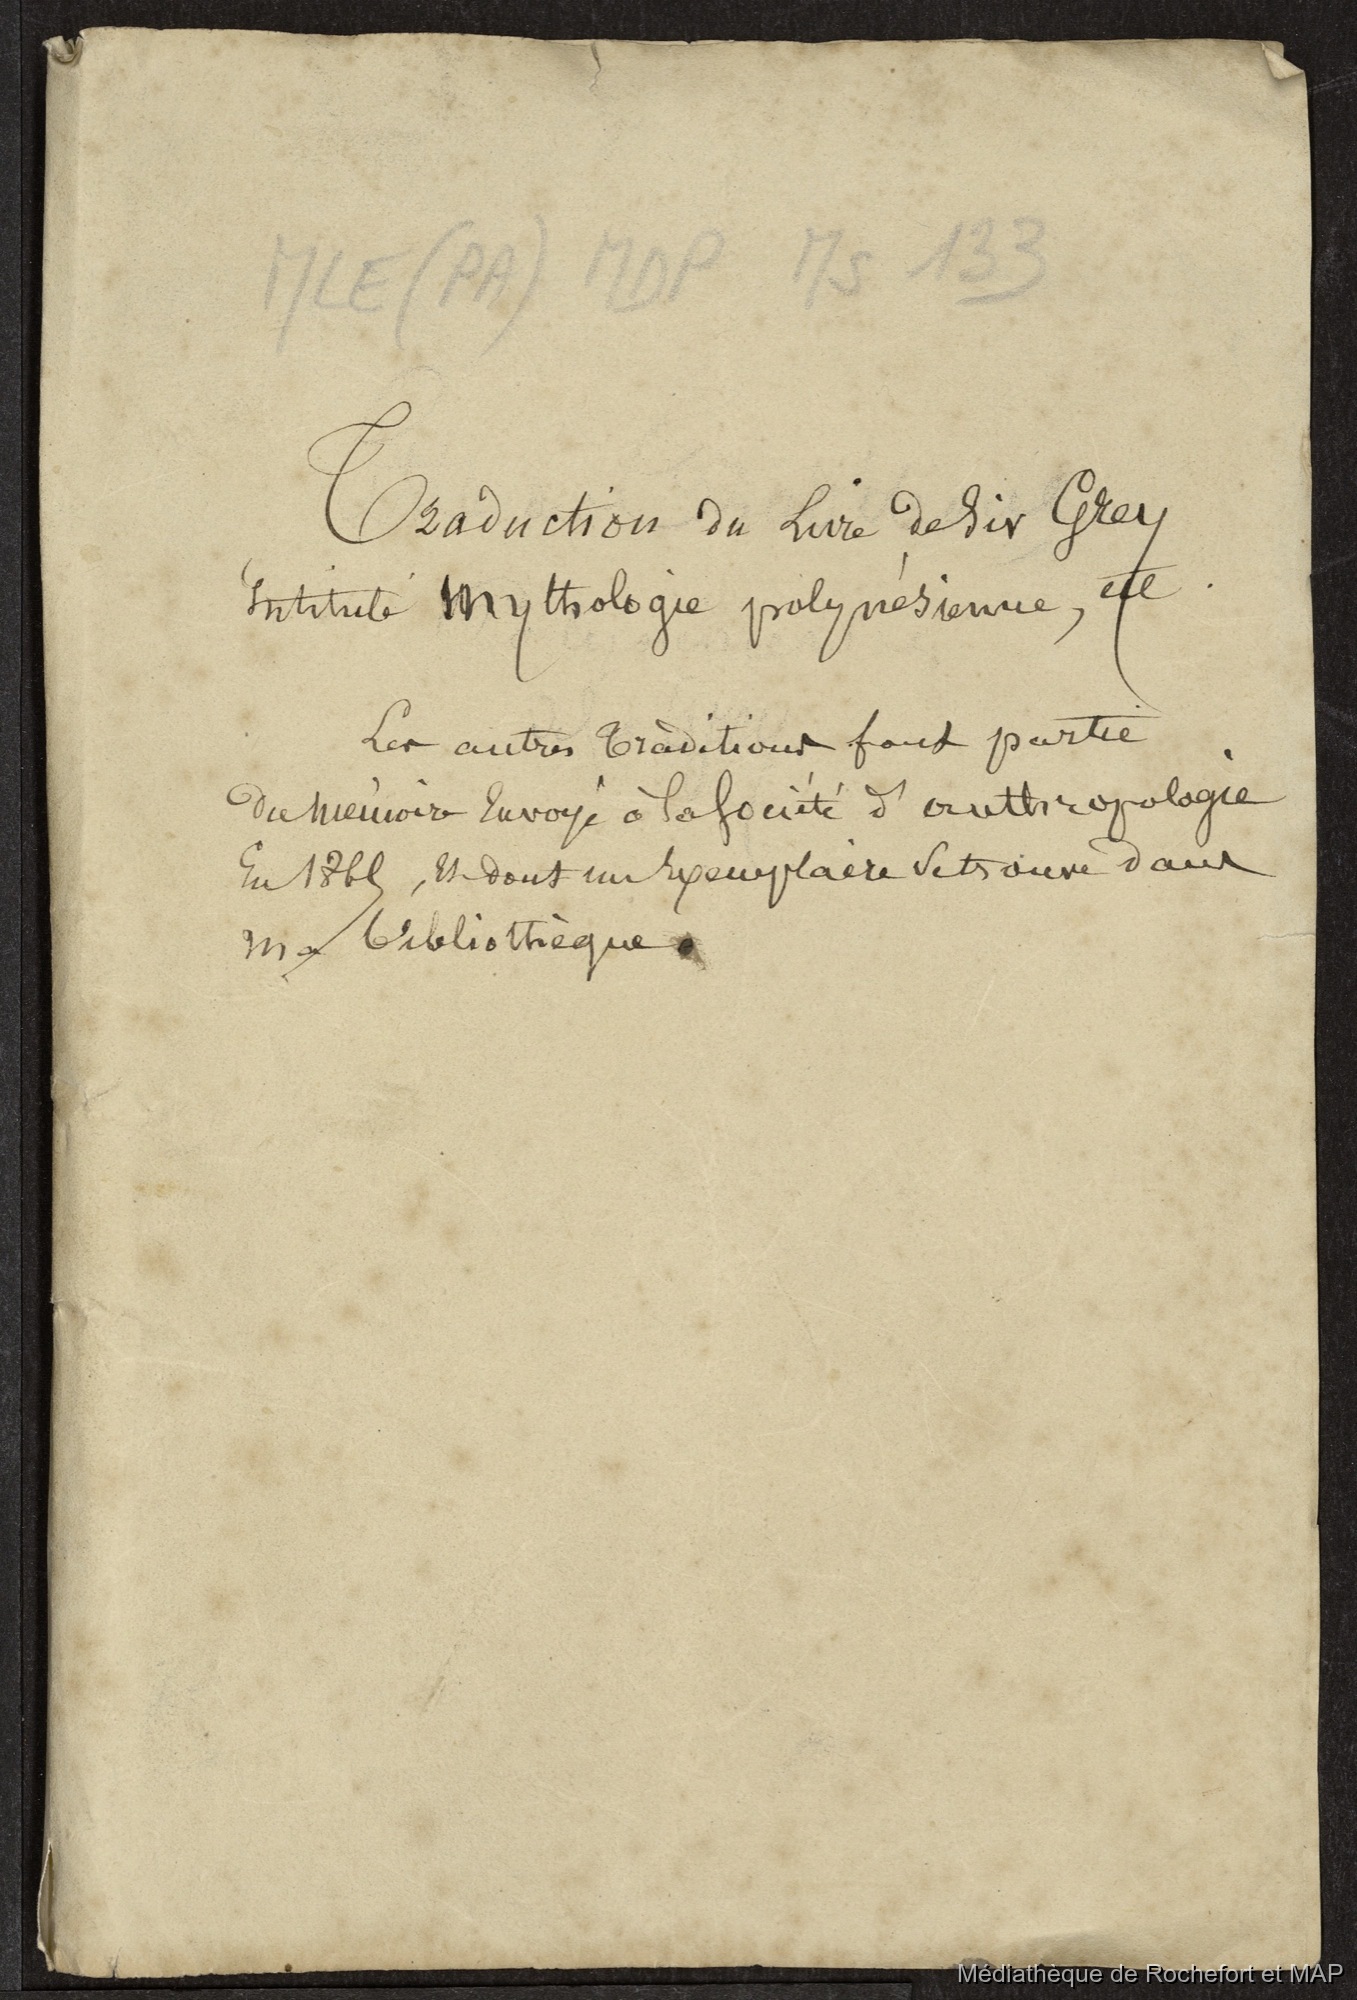 MLE (PA) MDP Ms 133
Traduction du Livre de Sir Grey
Intitulé Mythologie polynésienne, etc.
Les autres traditions font partie
du Mémoire Envoyé à la Société d'anthropologie
En , Et dont un Exemplaire se trouve dans
ma bibliothèque.
Médiathèque de Rochefort et MAP